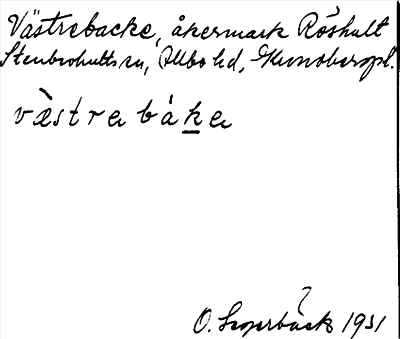 Västrebacke, åkermark Röshult
Stenbrohults sn, Allbo hd, Kronobergs l.
västra båka
O. 1931